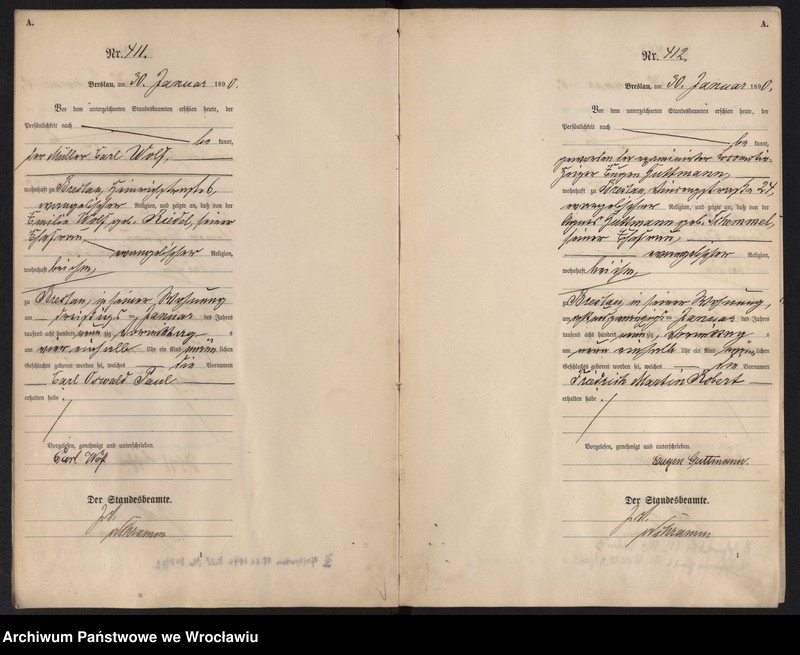 A.
Nr. 411.
Breslau, am 30. Januar 1890.
Vor dem unterzeichneten Standesbeamten erschien heute, der
Persönlichkeit nach
be kannt,
der Müller Carl Wolf,
wohnhaft zu Breslau, Heinrichstraße 6,
evangelischer Religion, und zeigte an, daß von der
Emilie Wolf geb. Riedel, seiner
Ehefrau,
evangelischer Religion,
wohnhaft bei ihm,
zu Breslau, in seiner Wohnung
am dreißigsten Januar des Jahres
tausend acht hundert neun zig Vormittag s
um vier einhalb Uhr ein Kind männ lichen
Geschlechts geboren worden sei, welches die Vornamen
Carl Oswald Paul
erhalten habe.
Vorgelesen, genehmigt und unterschrieben
Carl Wolf
Der Standesbeamte.
J. V.
A.
Nr. 412.
Breslau, am 30. Januar 1890.
Vor dem unterzeichneten Standesbeamten erschien heute, der
Persönlichkeit nach
be kannt,
der examinirter
Heizer Eugen Guttmann,
wohnhaft zu Breslau, 24,
evangelischer Religion, und zeigte an, daß von der
Agnes Guttmann geb.
seiner Ehefrau,
evangelischer Religion,
wohnhaft bei ihm,
zu Breslau, in seiner Wohnung,
am Januar des Jahres
tausend acht hundert neun zig Vormittag s
um neun einhalb Uhr ein Kind männ lichen
Geschlechts geboren worden sei, welches die Vornamen
Friedrich Martin Robert
erhalten habe.
Vorgelesen, genehmigt und unterschrieben
Eugen Guttmann.
Der Standesbeamte.
J. V.
Archiwum Państwowe we Wrocławiu